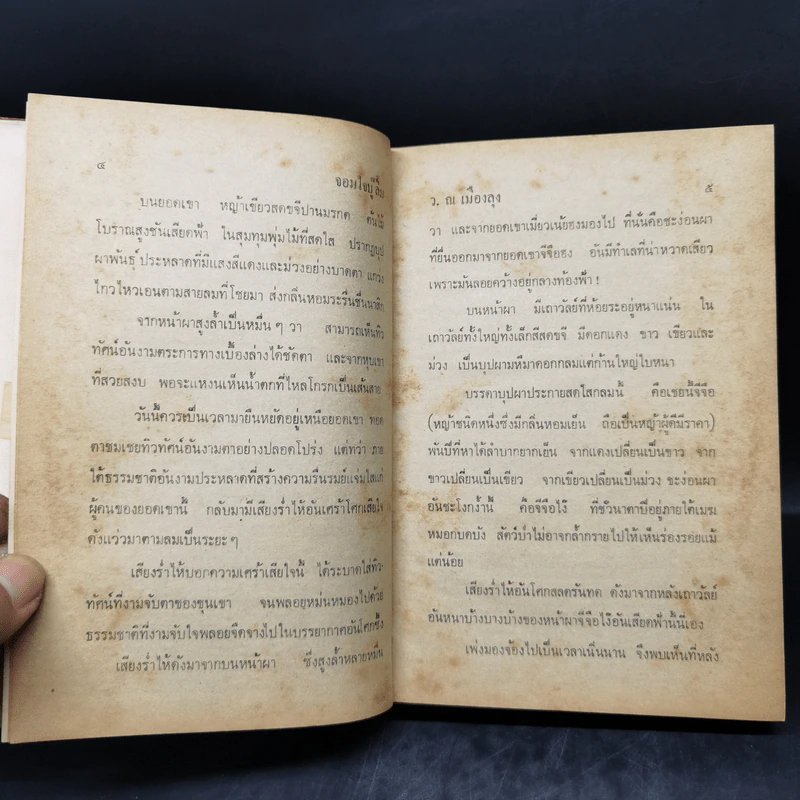 ๔
จอมใจบู๊ลิ้ม
บนยอดเขา หญ้าเขียวสดขจีปานมรกต ต้นไม้
โบราณสูงชันเสียดฟ้า ในสุมทุมพุ่มไม้ที่สดใส ปรากฏบุป
ผาพันธุ์ประหลาดที่มีแสงสีแดงและม่วงอย่างบาดตา แกว่ง
ไกวไหวเอนตามสายลมที่โชยมา ส่งกลิ่นหอมระรื่นชื่นนาสิก
จากหน้าผาสูงล้ำเป็นหมื่น ๆ วา สามารถเห็นทิว
ทัศน์อันงามตระการทางเบื้องล่างได้ชัดตา และจากหุบเขา
ที่สวยสงบ พอจะแหงนเห็นน้ำตกที่ไหลโกรกเป็นเส้นสาย
วันนี้ควรจะเป็นเวลามายืนหยัดอยู่เหนือยอดเขา ทอด
ตาชมเชยทิวทัศน์อันงามตาอย่างปลอดโปร่ง แต่ทว่า ภาย
ใต้ธรรมชาติอันงามประหลาดที่สร้างความรื่นรมย์แจ่มใสแก่
ผู้คนของยอดเขานี้ กลับมามีเสียงร่ำไห้อันเศร้าโศกเสียใจ
ดังแว่วมาตามลมเป็นระยะ ๆ
เสียงร่ำไห้บอกความเศร้าเสียใจนี้ ได้ระบาดใส่ทิว-
ทัศน์ที่งามจับตาของขุนเขา จนพลอยหม่นหมองไปด้วย
ธรรมชาติที่งามจับใจพลอยจืดจางไปในบรรยากาศอันโศกซึ้ง
เสียงร่ำไห้ดังมาจากบนหน้าผา ซึ่งสูงล้ำหลายหมื่น
ว. ณ เมืองลุง
๕
วา และจากยอดเขาเมี่ยวเน้ยฮงมองไป ที่นั่นคือชะง่อนผา
ที่ยื่นออกมาจากยอดเขาจีจือฮง อันมีทำเลที่น่าหวาดเสียว
เพราะมันลอยคว้างอยู่กลางท้องฟ้า !
บนหน้าผา มีเถาวัลย์ที่ห้อยระอยู่หนาแน่น ใน
เถาวัลย์ทั้งใหญ่ทั้งเล็กสีสดขจี มีดอกแดง ขาว เขียวและ
ม่วง เป็นบุปผามหึมาดอกกลมแต่ก้านใหญ่ใบหนา
บรรดาบุปผาประกายสดใสกลมนี้ คือเซยนี้จีจือ
(หญ้าชนิดหนึ่งซึ่งมีกลิ่นหอมเย็น ถือเป็นหญ้าผู้ดีมีราคา)
พันปีที่หาได้ลำบากยากเย็น จากแดงเปลี่ยนเป็นขาว จาก
ขาวเปลี่ยนเป็นเขียว จากเขียวเปลี่ยนเป็นม่วง ชะง่อนผา
อันชะโงกง้ำนี้ คือจีจือไง้ ที่ชั่วนาตาปีอยู่ภายใต้เมฆ
หมอกบดบัง สัตว์ป่าไม่อาจกล้ำกรายไปให้เห็นร่องรอยแม้
แต่น้อย
เสียงร่ำไห้อันโศกสลดรันทด ดังมาจากหลังเถาวัลย์
อันหนาบ้างบางบ้างของหน้าผาจีจือไง้อันเสียดฟ้านี้นี่เอง
เพ่งมองจ้องไปเป็นเวลาเนิ่นนาน จึงพบเห็นที่หลัง